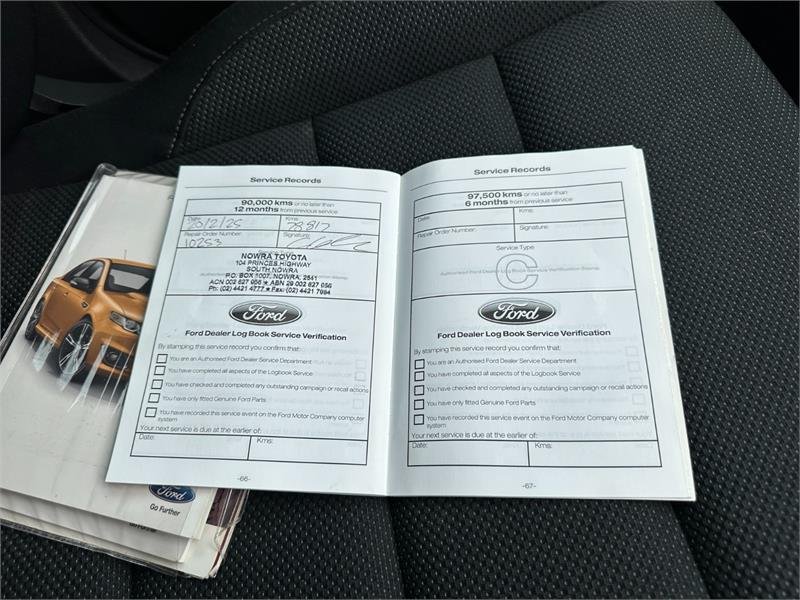 Service Records
90,000 kms or no later than
12 months from previous service
Date:
Kms:
78817
Repair Order Number:
Signature:
10253
NOWRA TOYOTA
104 PRINCES HIGHWAY
SOUTH NOWRA
P.O. BOX 1007, NOWRA, 2541
ACN 002 627 956 ★ ABN 29 002 627 956
Ph: (02) 4421 4777 ★ Fax: (02) 4421 7984
Ford
Ford Dealer Log Book Service Verification
By stamping this service record you confirm that:
You are an Authorised Ford Dealer Service Department
You have completed all aspects of the Logbook Service
You have checked and completed any outstanding campaign or recall actions
You have only fitted Genuine Ford Parts
You have recorded this service event on the Ford Motor Company computer
system
Your next service is due at the earlier of:
Date:
Kms:
-66-
Service Records
97,500 kms or no later than
6 months from previous service
Date:
Kms:
Repair Order Number:
Signature:
Service Type
C
Authorised Ford Dealer Log Book Service Verification Stamp
Ford
Ford Dealer Log Book Service Verification
By stamping this service record you confirm that:
You are an Authorised Ford Dealer Service Department
You have completed all aspects of the Logbook Service
You have checked and completed any outstanding campaign or recall actions
You have only fitted Genuine Ford Parts
You have recorded this service event on the Ford Motor Company computer
system
Your next service is due at the earlier of:
Date:
Kms:
-67-
Ford
Go Further